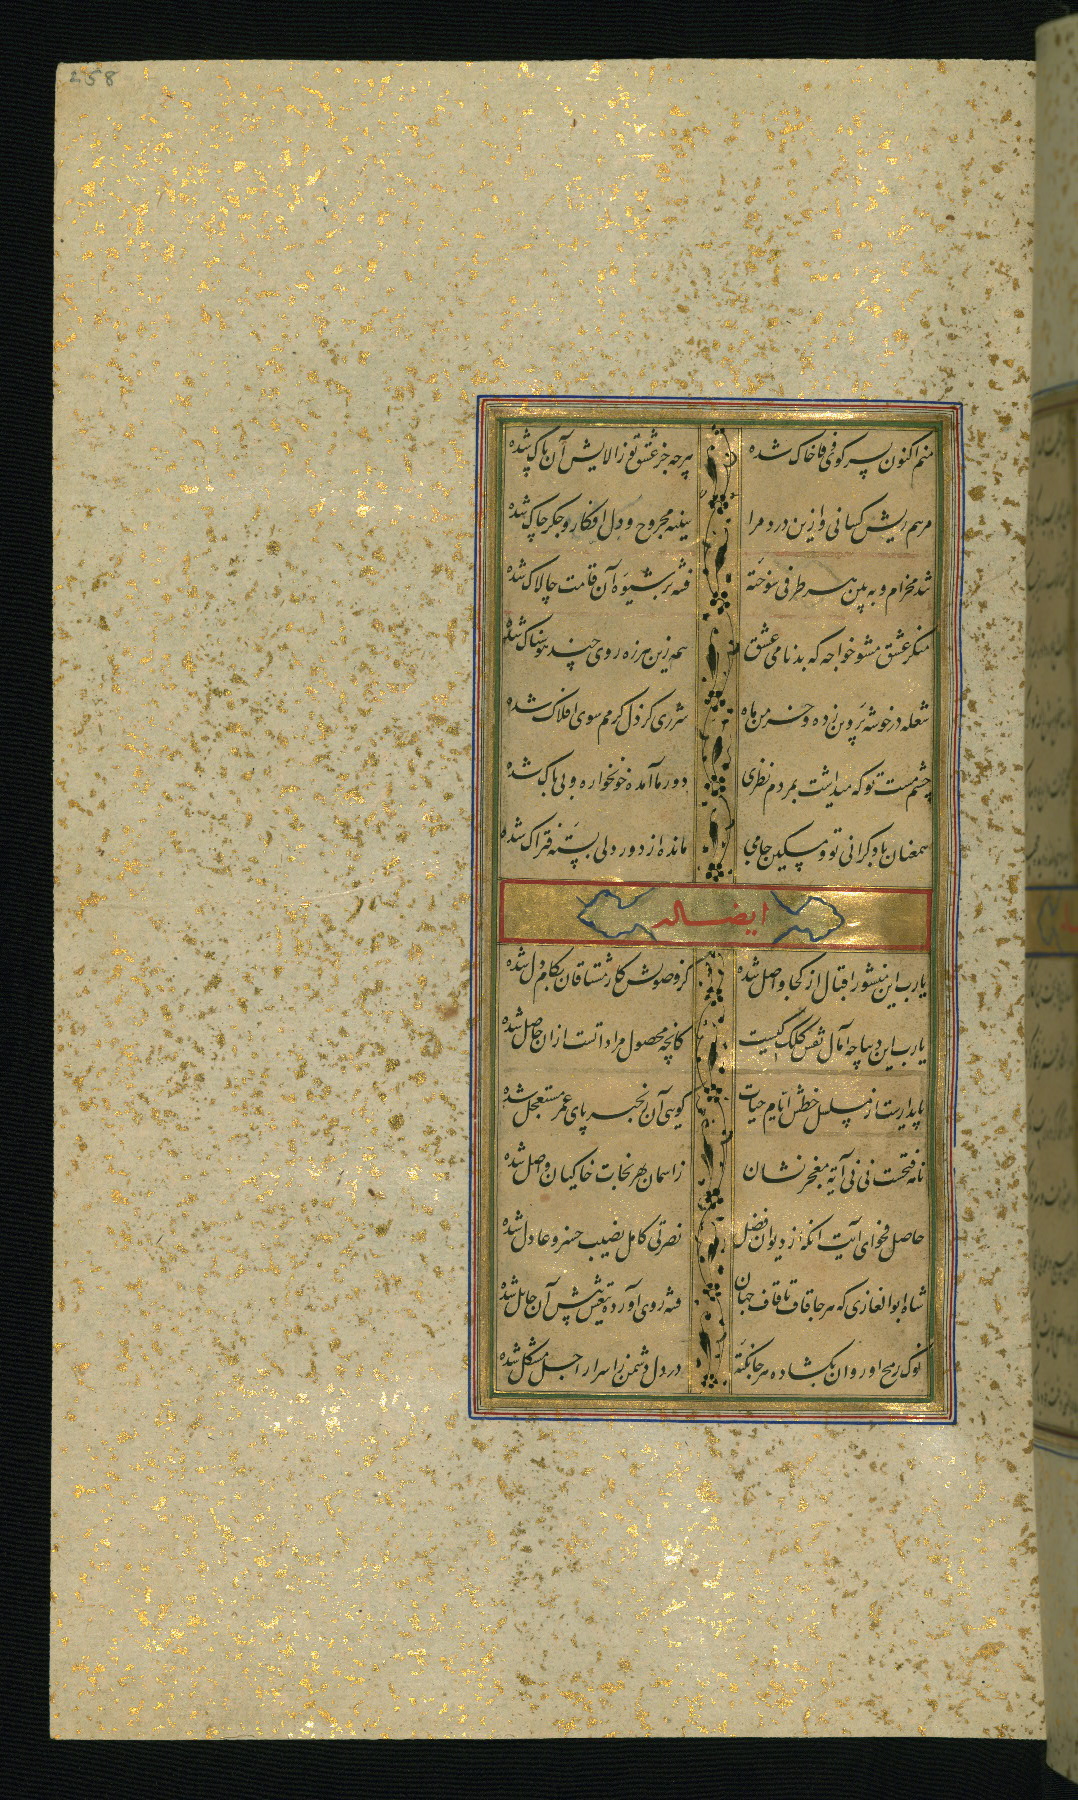 258
منم اکنون بسر کوی وفا خاک شده
هر چه جز عشق تو ز آلایش آن پاک شده
مرهم ریش کسانی و ازین درد مرا
سینه مجروح و دل افکار و جکر چاک شده
شد مخرام و به بین هر طرفی سوخته
فتنه بر شیوه آن قامت چالاک شده
منکر عشق مشو خواجه که بدنامی عشق
همه زین هرزه روی چند هوسناک شده
شعله در خوشه پروین زده و خرمن ماه
شرری کز دل کرمم سوی افلاک شده
چشم مست تو که میداشت بمردم نظری
دور ما آمده خونخواره و بی باک شده
همعنان با دکرانی تو و مسکین جامی
مانده از دور دلی بسته فتراک شده
ایضا له
یارب این منشور اقبال از کجا واصل شده
کز وصولش کار مشتاقان بکام دل شده
یارب این دیباچه آمال نقش کلک کیست
کانچه محصول مراد است ازان حاصل شده
پایدارست از سلسل خطش ایام حیات
کویی آن زنجیر پای عمر مستعجل شده
نامه فتحست نی نی آیه معجز نشان
ز اسمان بهر نجات خاکیان واصل شده
حاصل فحوای آیت آنکه از دیوان فضل
نصرتی کامل نصیب خسرو عادل شده
شاه ابوالغازی که هر جا قاف تا قاف جهان
فتنه روی آورده تیغش پیش آن حایل شده
نوک رمح او روان بکشاده هر جا نکته
در دل دشمن ز اسرار اجل مشکل شده